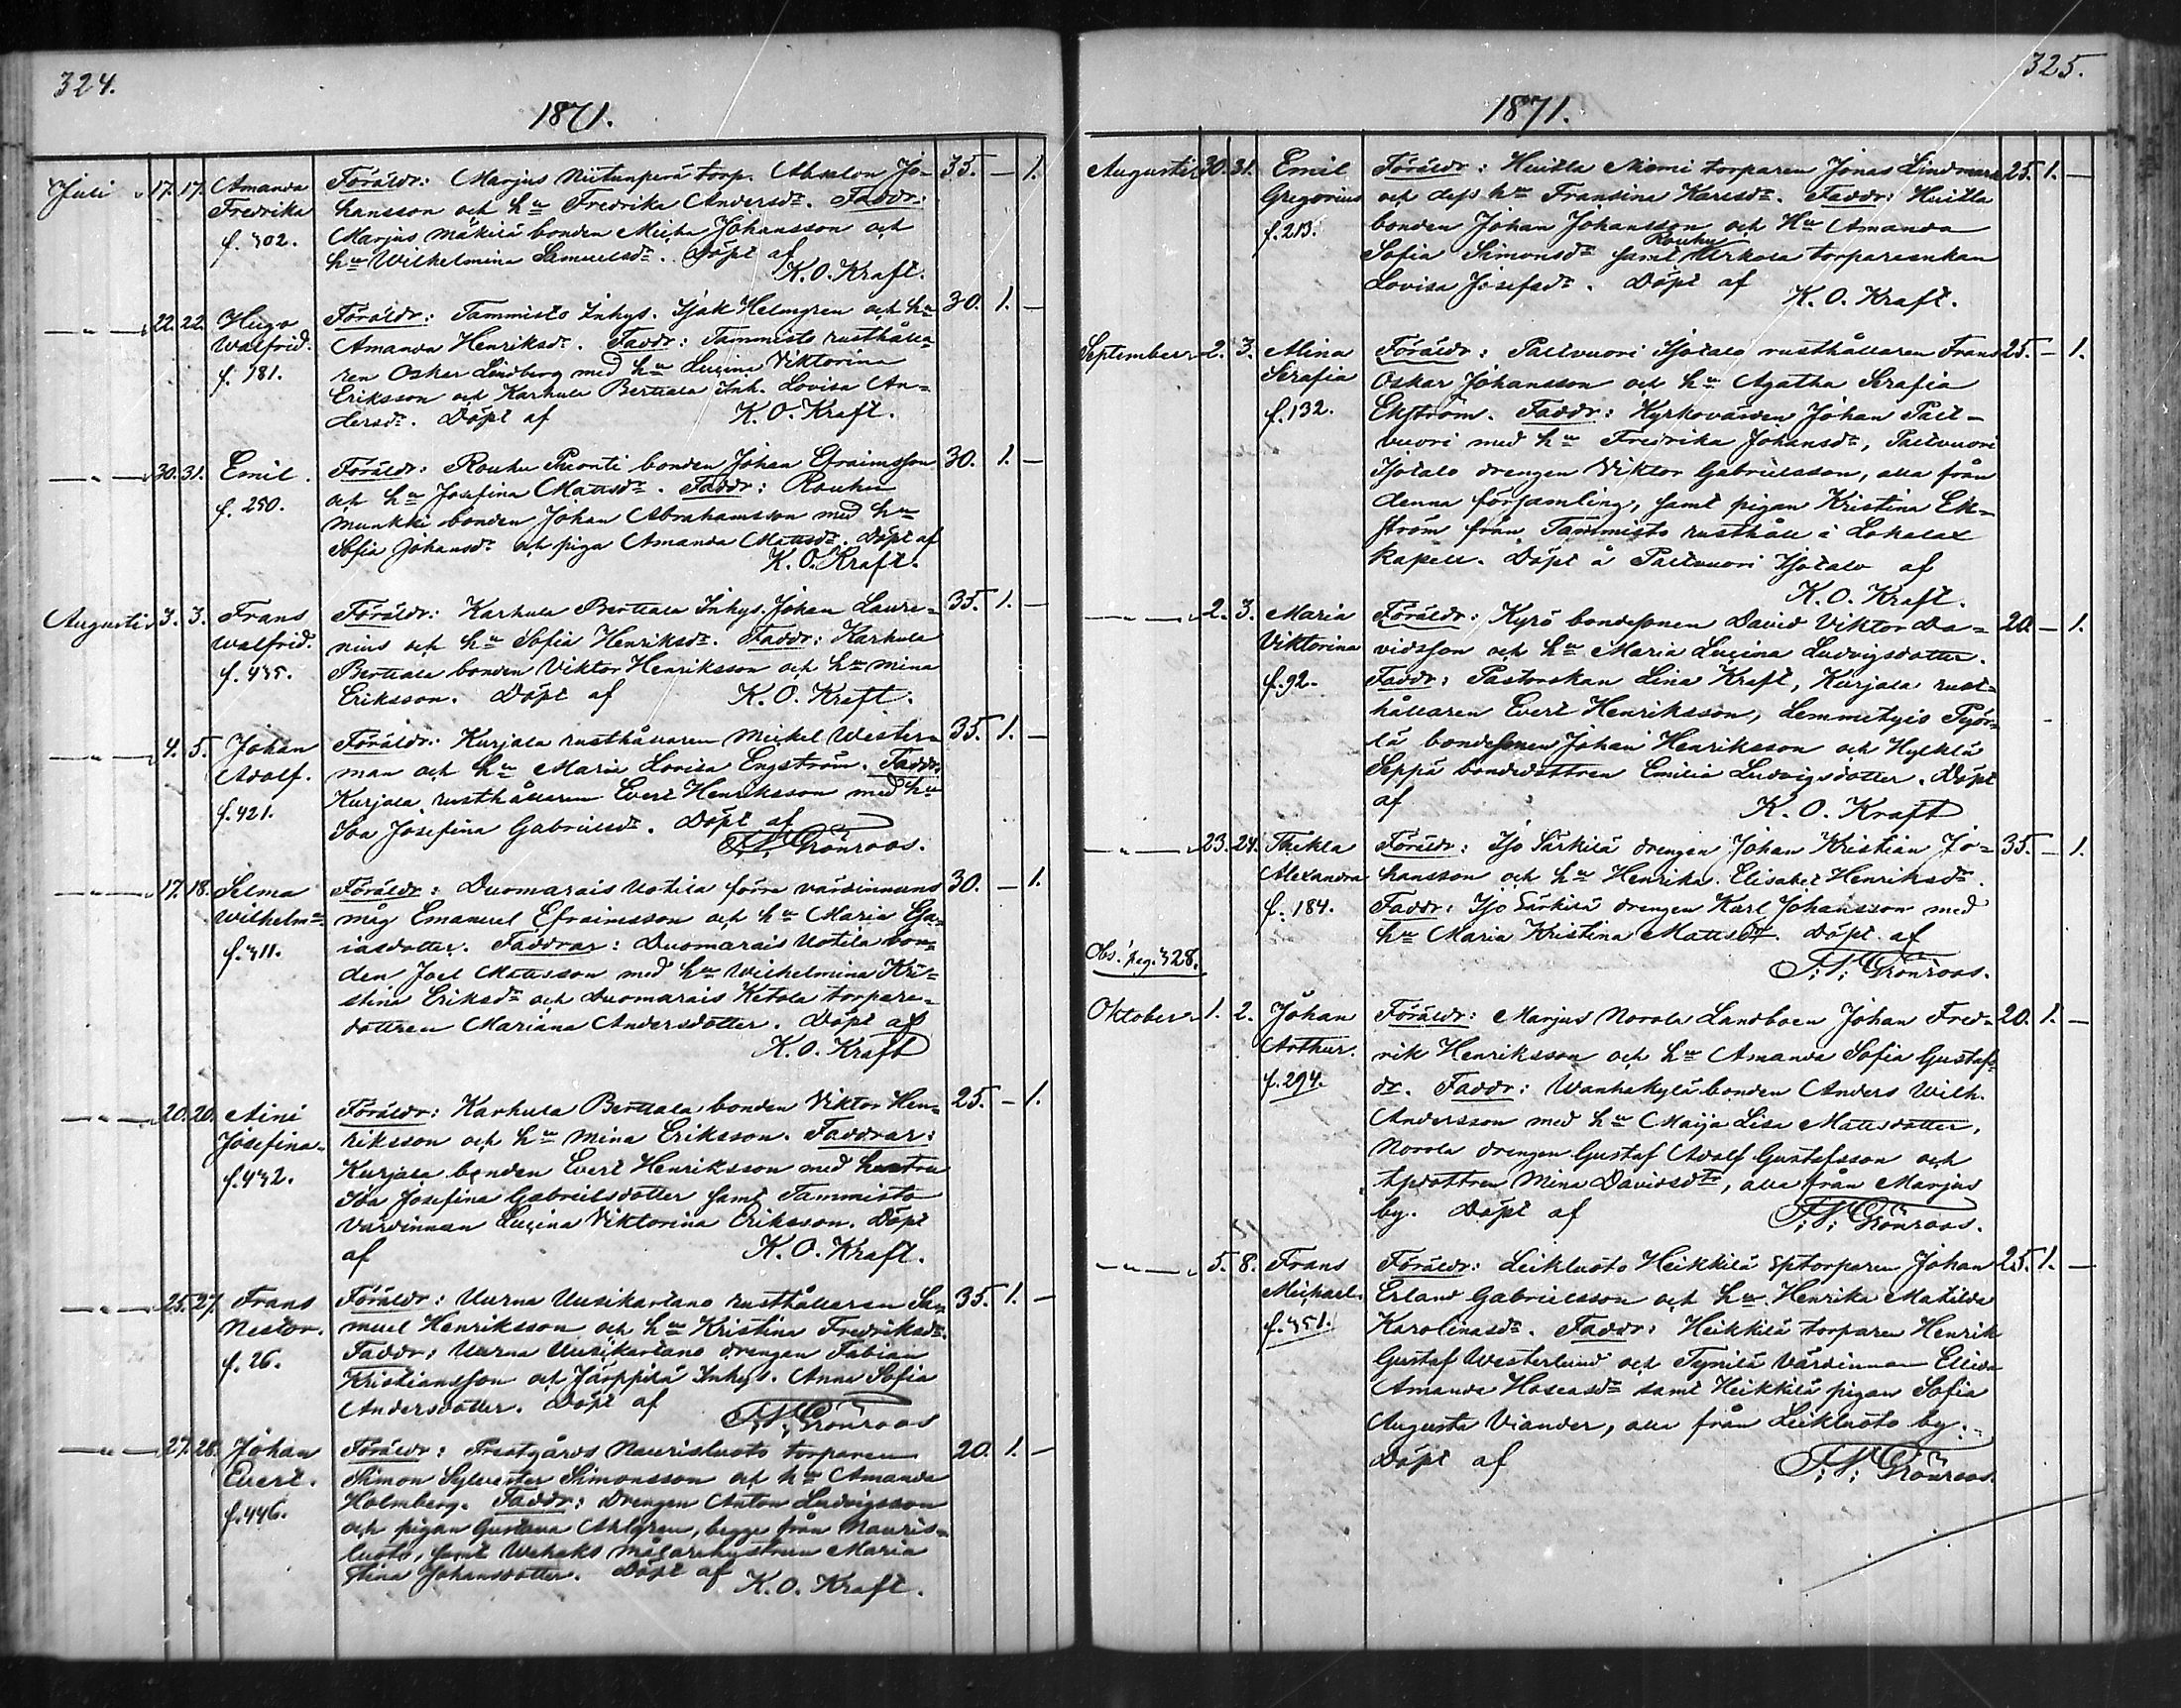 324.
1871.
Juli 17. 17. Amanda Föräldr: Marjus Niitunperä torp. Abralon Jo- 35. — 1.
Fredrika hansson och hu Fredrika Andersdr. Faddr:
f. 302. Marjus Mäkilä bonden Micha Johansson och
hu Wilhelmina Samuelsdr. Döpt af
K. O. Kraft.
—"— 22. 22. Hugo Föräldr: Tammisto Inhys. Isak Helmgren och hu 30. 1. —
Walfrid. Amanda Henriksdr. Faddr: Tammisto rusthålla-
f. 181. ren Oskar Lindberg med hu Lucina Viktorina
Eriksson och Karhula Berttala Inh. Lovisa An-
dersdr. Döpt af K. O. Kraft.
—"— 30. 31. Emil. Föräldr: Rouhu Pruonti bonden Johan Efraimsson 30. 1. —
f. 250. och hu Josefina Mattsdr. Faddr: Rouhu
Munkki bonden Johan Abrahamsson med hu
Sofia Johansdr och piga Amanda Mattsdr. Döpt af
K. O. Kraft.
Augusti 3. 3. Frans Föräldr: Karhula Berttala Inhys. Johan Laure- 35. 1. —
Walfrid. nius och hu Sofia Henriksdr. Faddr: Karhula
f. 435. Berttala bonden Viktor Henriksson och hu Mina
Eriksson. Döpt af K. O. Kraft.
—"— 4. 5. Johan Föräldr: Kurjala rusthållaren Mickel Wester- 35. 1. —
Adolf. man och hu Maria Lovisa Engström. Faddr:
f. 421. Kurjala rusthållaren Evert Henriksson med hu
Ida Josefina Gabrielsdr. Döpt af
F. F. Grönroos.
—"— 17. 18. Selma Föräldr: Duomarais Uotila förra värdinnans 30. — 1.
Wilhelma måg Emanuel Efraimsson och hu Maria Esa-
f. 311. iasdotter. Faddrar: Duomarais Uotila bon-
den Joel Mattsson med hu Wilhelmina Kri-
stina Eriksdr och Duomarais Ketola torpare-
dottren Mariana Andersdotter. Döpt af
K. O. Kraft
—"— 20. 20. Aini Föräldr: Karhula Berttala bonden Viktor Hen- 25. — 1.
Josefina. riksson och hu Mina Eriksson. Faddrar:
f. 432. Kurjala bonden Evert Henriksson med hustru
Ida Josefina Gabrielsdotter samt Tammisto
värdinnan Lucina Viktorina Eriksson. Döpt
af K. O. Kraft.
—"— 25. 27. Frans Föräldr: Uurna Uusikartano rusthållaren Sa- 35. 1. —
Nestor. muel Henriksson och hu Kristina Fredriksdr.
f. 26. Faddr: Uurna Uusikartano drengen Fabian
Kristiansson och Järppilä Inhys. Anna Sofia
Andersdotter. Döpt af F. F. Grönroos
—"— 27. 28. Johan Föräldr: Prestgårds Naurisluoto torparen 20. 1. —
Evert. Simon Sylvester Simonsson och hu Amanda
f. 446. Holmberg. Faddr: Drengen Anton Ludvigsson
och pigan Gustava Ahlgren, begge från Nauris-
luoto, samt Wehaks målarehustrun Maria
Stina Johansdotter. Döpt af K. O. Kraft.
325.
1871.
Augusti 30. 31. Emil Föräldr: Huitla Niemi torparen Jonas Lindman 25. 1. —
Gregorius och dess hu Fransina Karlsdr. Faddr: Huitla
f. 213. bonden Johan Johansson och Hu Amanda
Sofia Simonsdr samt Rouhu Urkola torpareenkan
Lovisa Josefsdr. Döpt af
K. O. Kraft.
September 2. 3. Alina Föräldr: Paltvuori Isotalo rusthållaren Frans 25. — 1.
Serafia Oskar Johansson och hu Agatha Serafia
f. 132. Ekström. Faddr: Kyrkovärden Johan Palt-
vuori med hu Fredrika Johansdr, Paltvuori
Isotalo drengen Viktor Gabrielsson, alla från
denna församling, samt pigan Kristina Ek-
ström från Tammisto rusthåll i Lokalax
kapell. Döpt å Paltvuori Isotalo af
K. O. Kraft.
—"— 2. 3. Maria Föräldr: Kyrö bondesonen David Viktor Da- 20. — 1.
Viktorina vidsson och hu Maria Lucina Ludvigsdotter.
f. 92. Faddr: Pastorskan Lina Kraft, Kurjala rust-
hållaren Evert Henriksson, Lemmetyis Pyör-
lä bondesonen Johan Henriksson och Hylkilä
Seppä bondedottren Emilia Ludvigsdotter. Döpt
af K. O. Kraft
—"— 23. 24. Thekla Föräldr: Iso Särkilä drengen Johan Kristian Jo- 35. — 1.
Alexandra hansson och hu Henrika Elisabet Henriksdr.
f. 184. Faddr: Iso Särkilä drengen Karl Johansson med
hu Maria Kristina Mattsdr. Döpt af
F. F. Grönroos.
Obs. pag. 328.
Oktober 1. 2. Johan Föräldr: Marjus Norola Landboen Johan Fred- 20. 1. —
Arthur. rik Henriksson och hu Amanda Sofia Gustafs-
f. 294. dr. Faddr: Wanhakylä bonden Anders Wilh.
Andersson med hu Maija Lisa Mattsdotter,
Norola drengen Gustaf Adolf Gustafsson och
tpdottren Mina Davidsdtr, alla från Marjus
by. Döpt af F. F. Grönroos.
—"— 5. 8. Frans Föräldr: Leikluoto Heikkilä sptorparen Johan 25. 1. —
Michael. Erland Gabrielsson och hu Henrika Matilda
f. 351. Karolinasdr. Faddr: Heikkilä torparen Henrik
Gustaf Westerlund och Tynilä värdinnan Ellida
Amanda Hoseasdr samt Heikkilä pigan Sofia
Augusta Viander, alla från Leikluoto by.
Döpt af F. F. Grönroos.